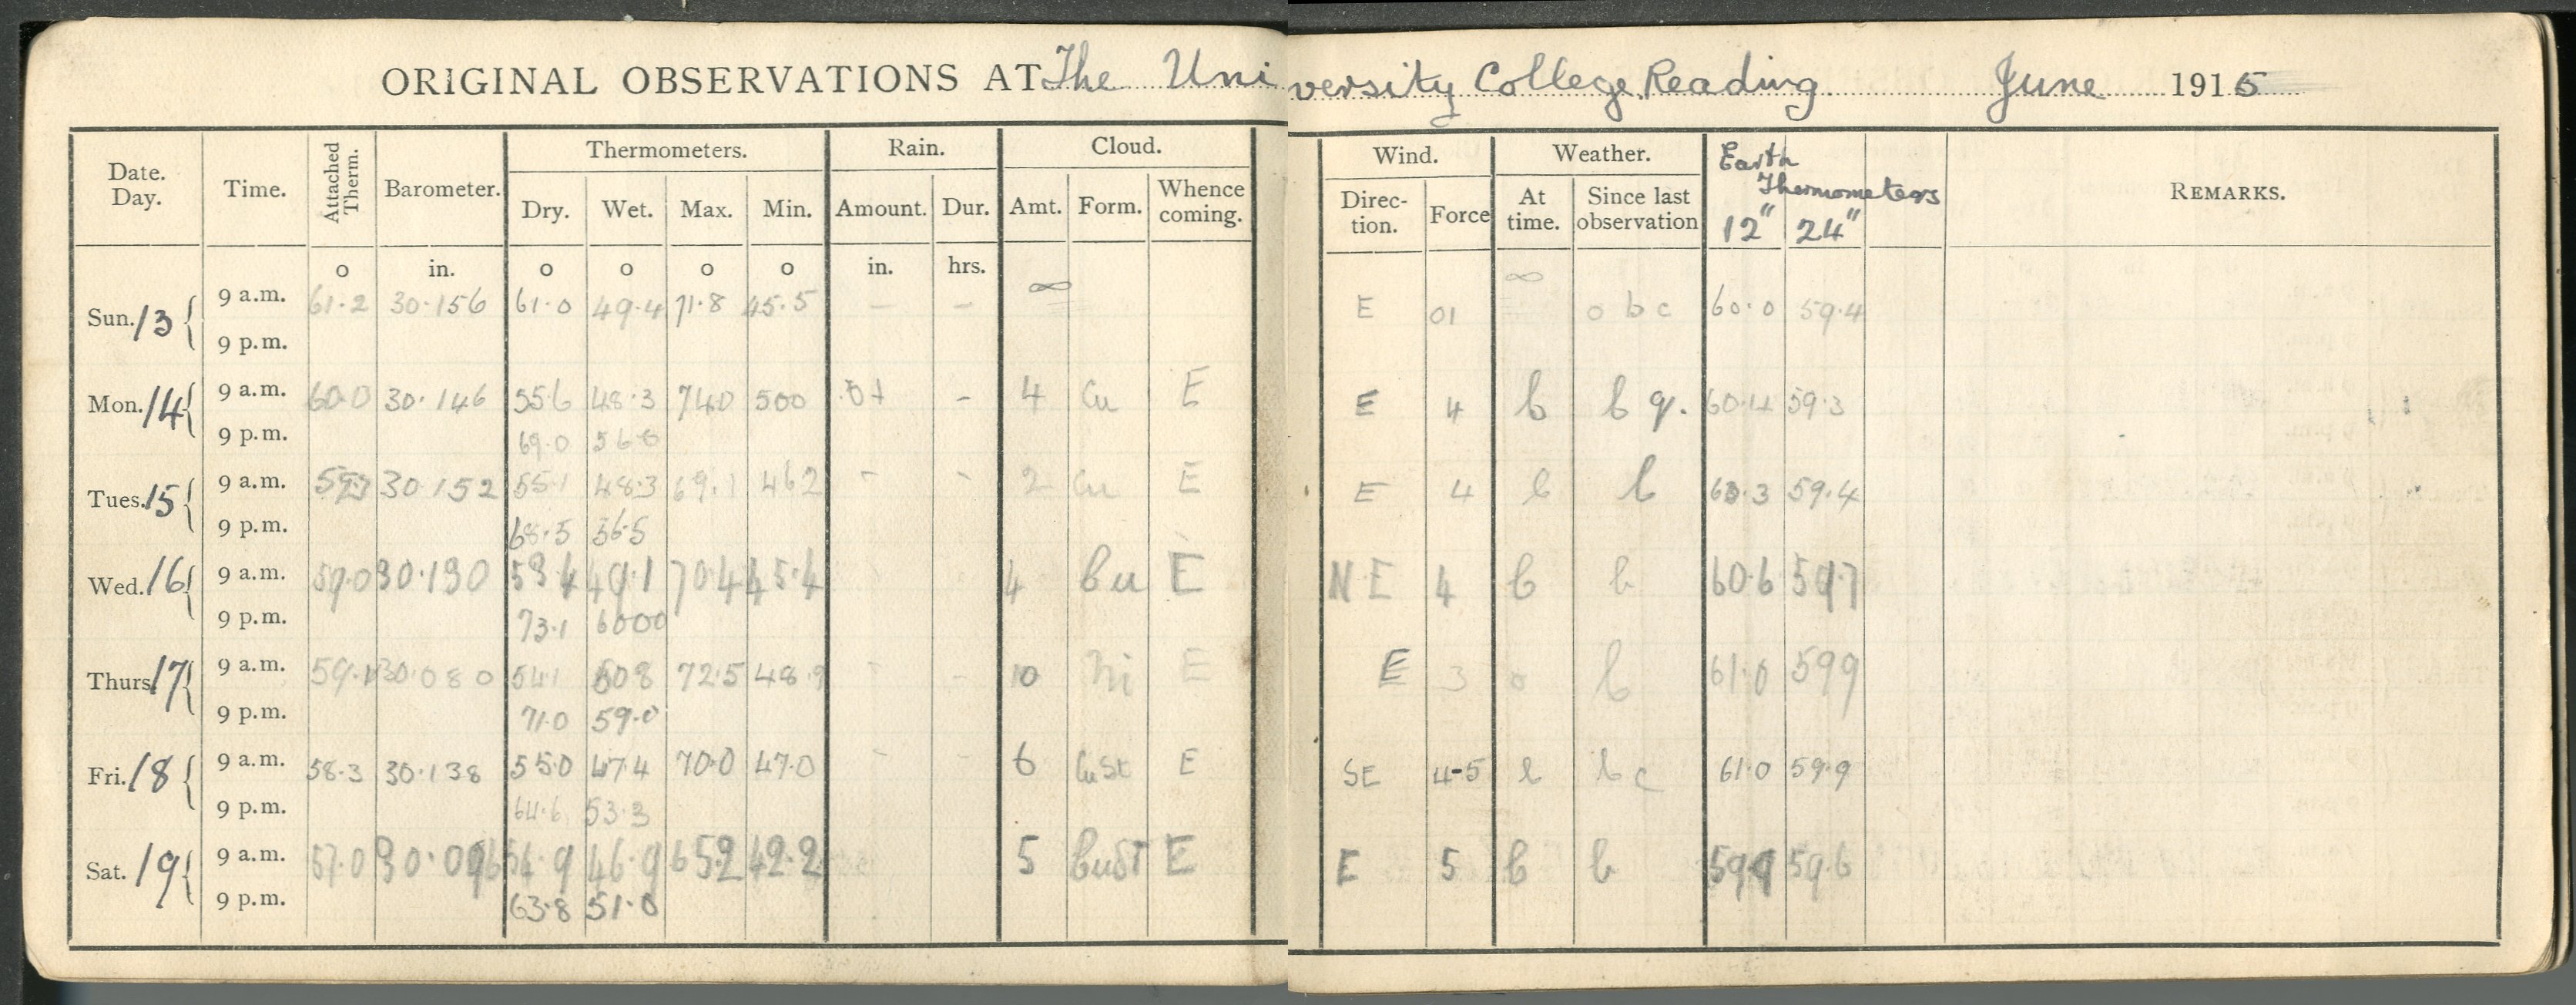 ORIGINAL OBSERVATIONS AT The University College Reading June 1915
Date. Day. Time. Attached Therm. Barometer. Thermometers. Rain. Cloud. Wind. Weather. Earth Thermometers REMARKS.
Dry. Wet. Max. Min. Amount. Dur. Amt. Form. Whence coming. Direc- tion. Force At time. Since last observation 12" 24"
o in. o o o o in. hrs.
Sun. 13 9 a.m. 61.2 30.156 61.0 49.4 71.8 45.5 – – ∞ E 01 ∞ o b c 60.0 59.4
9 p.m.
Mon. 14 9 a.m. 60.0 30.146 55.6 48.3 74.0 50.0 – 4 Cu E E 4 b b q. 60.4 59.3
9 p.m. 69.0 56.0
Tues. 15 9 a.m. 30.152 55.1 48.3 69.1 46.2 – – 2 Cu E E 4 b b 60.3 59.4
9 p.m. 68.5 56.5
Wed. 16 9 a.m. 59.0 30.130 53.4 49.1 70.4 45.4 4 Cu E NE 4 b b 60.6 59.7
9 p.m. 73.1
Thurs 17 9 a.m. 59.1 30.080 54.1 50.8 72.5 48.9 – – 10 Ni E E 3 o b 61.0 59.9
9 p.m. 71.0 59.0
Fri. 18 9 a.m. 58.3 30.138 55.0 47.4 70.0 47.0 – – 6 CuSt E SE 4-5 b b c 61.0 59.9
9 p.m. 64.6 53.3
Sat. 19 9 a.m. 57.0 30.096 54.9 46.9 65.2 42.2 5 CuST E E 5 b b 59.9 59.6
9 p.m. 63.8 51.0